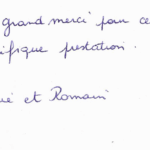 grand merci pour ce
ifique prestation.
et Romain